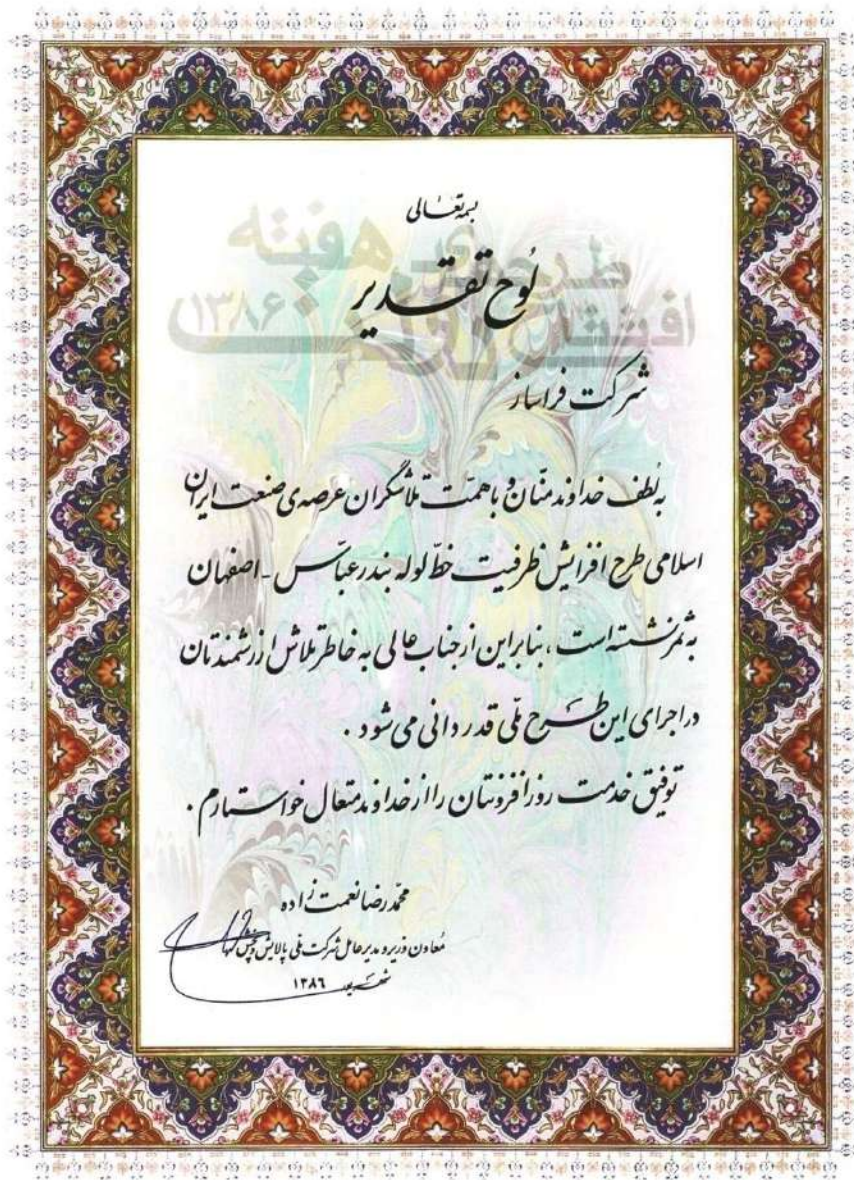 بسمه تعالی
طرح‌های هفته
(۱۳۸۶)
لوح تقدیر
شرکت فراساز
به لطف خداوند منّان و با همّت تلاشگران عرصه‌ی صنعت ایران
اسلامی طرح افزایش ظرفیت خطّ لوله بندرعبّاس - اصفهان
به ثمر نشسته است، بنابراین از جناب عالی به خاطر تلاش ارزشمندتان
در اجرای این طرح ملّی قدردانی می‌شود.
توفیق خدمت روزافزونتان را از خداوند متعال خواستارم.
محمّدرضا نعمت زاده
مُعاون وزیر و مدیرعامل شرکت ملّی پالایش و پخش
شهریور ۱۳۸۶